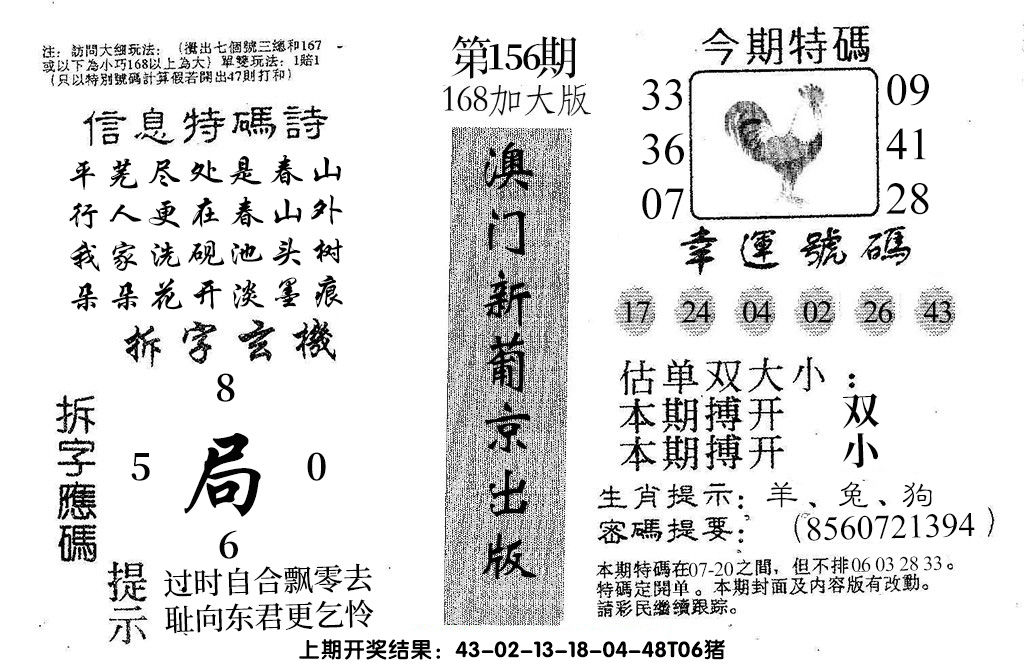 注：訪問大细玩法：（攪出七個號三總和167
或以下為小巧168以上為大）單雙玩法：1賠1
（只以特別號碼計算假若開出47則打和）
信息特碼詩
平芜尽处是春山
行人更在春山外
我家洗砚池头树
朵朵花开淡墨痕
拆字玄機
拆字應碼
8
5 局 0
6
提示
过时自合飘零去
耻向东君更乞怜
第156期
168加大版
澳门新葡京出版
今期特碼
33 09
36 41
07 28
幸運號碼
17 24 04 02 26 43
估单双大小：
本期搏开 双
本期搏开 小
生肖提示：羊、兔、狗
密碼提要：（8560721394）
本期特碼在07-20之間，但不排06 03 28 33。
特碼定開单。本期封面及内容版有改動。
請彩民繼續跟踪。
上期开奖结果：43-02-13-18-04-48T06猪